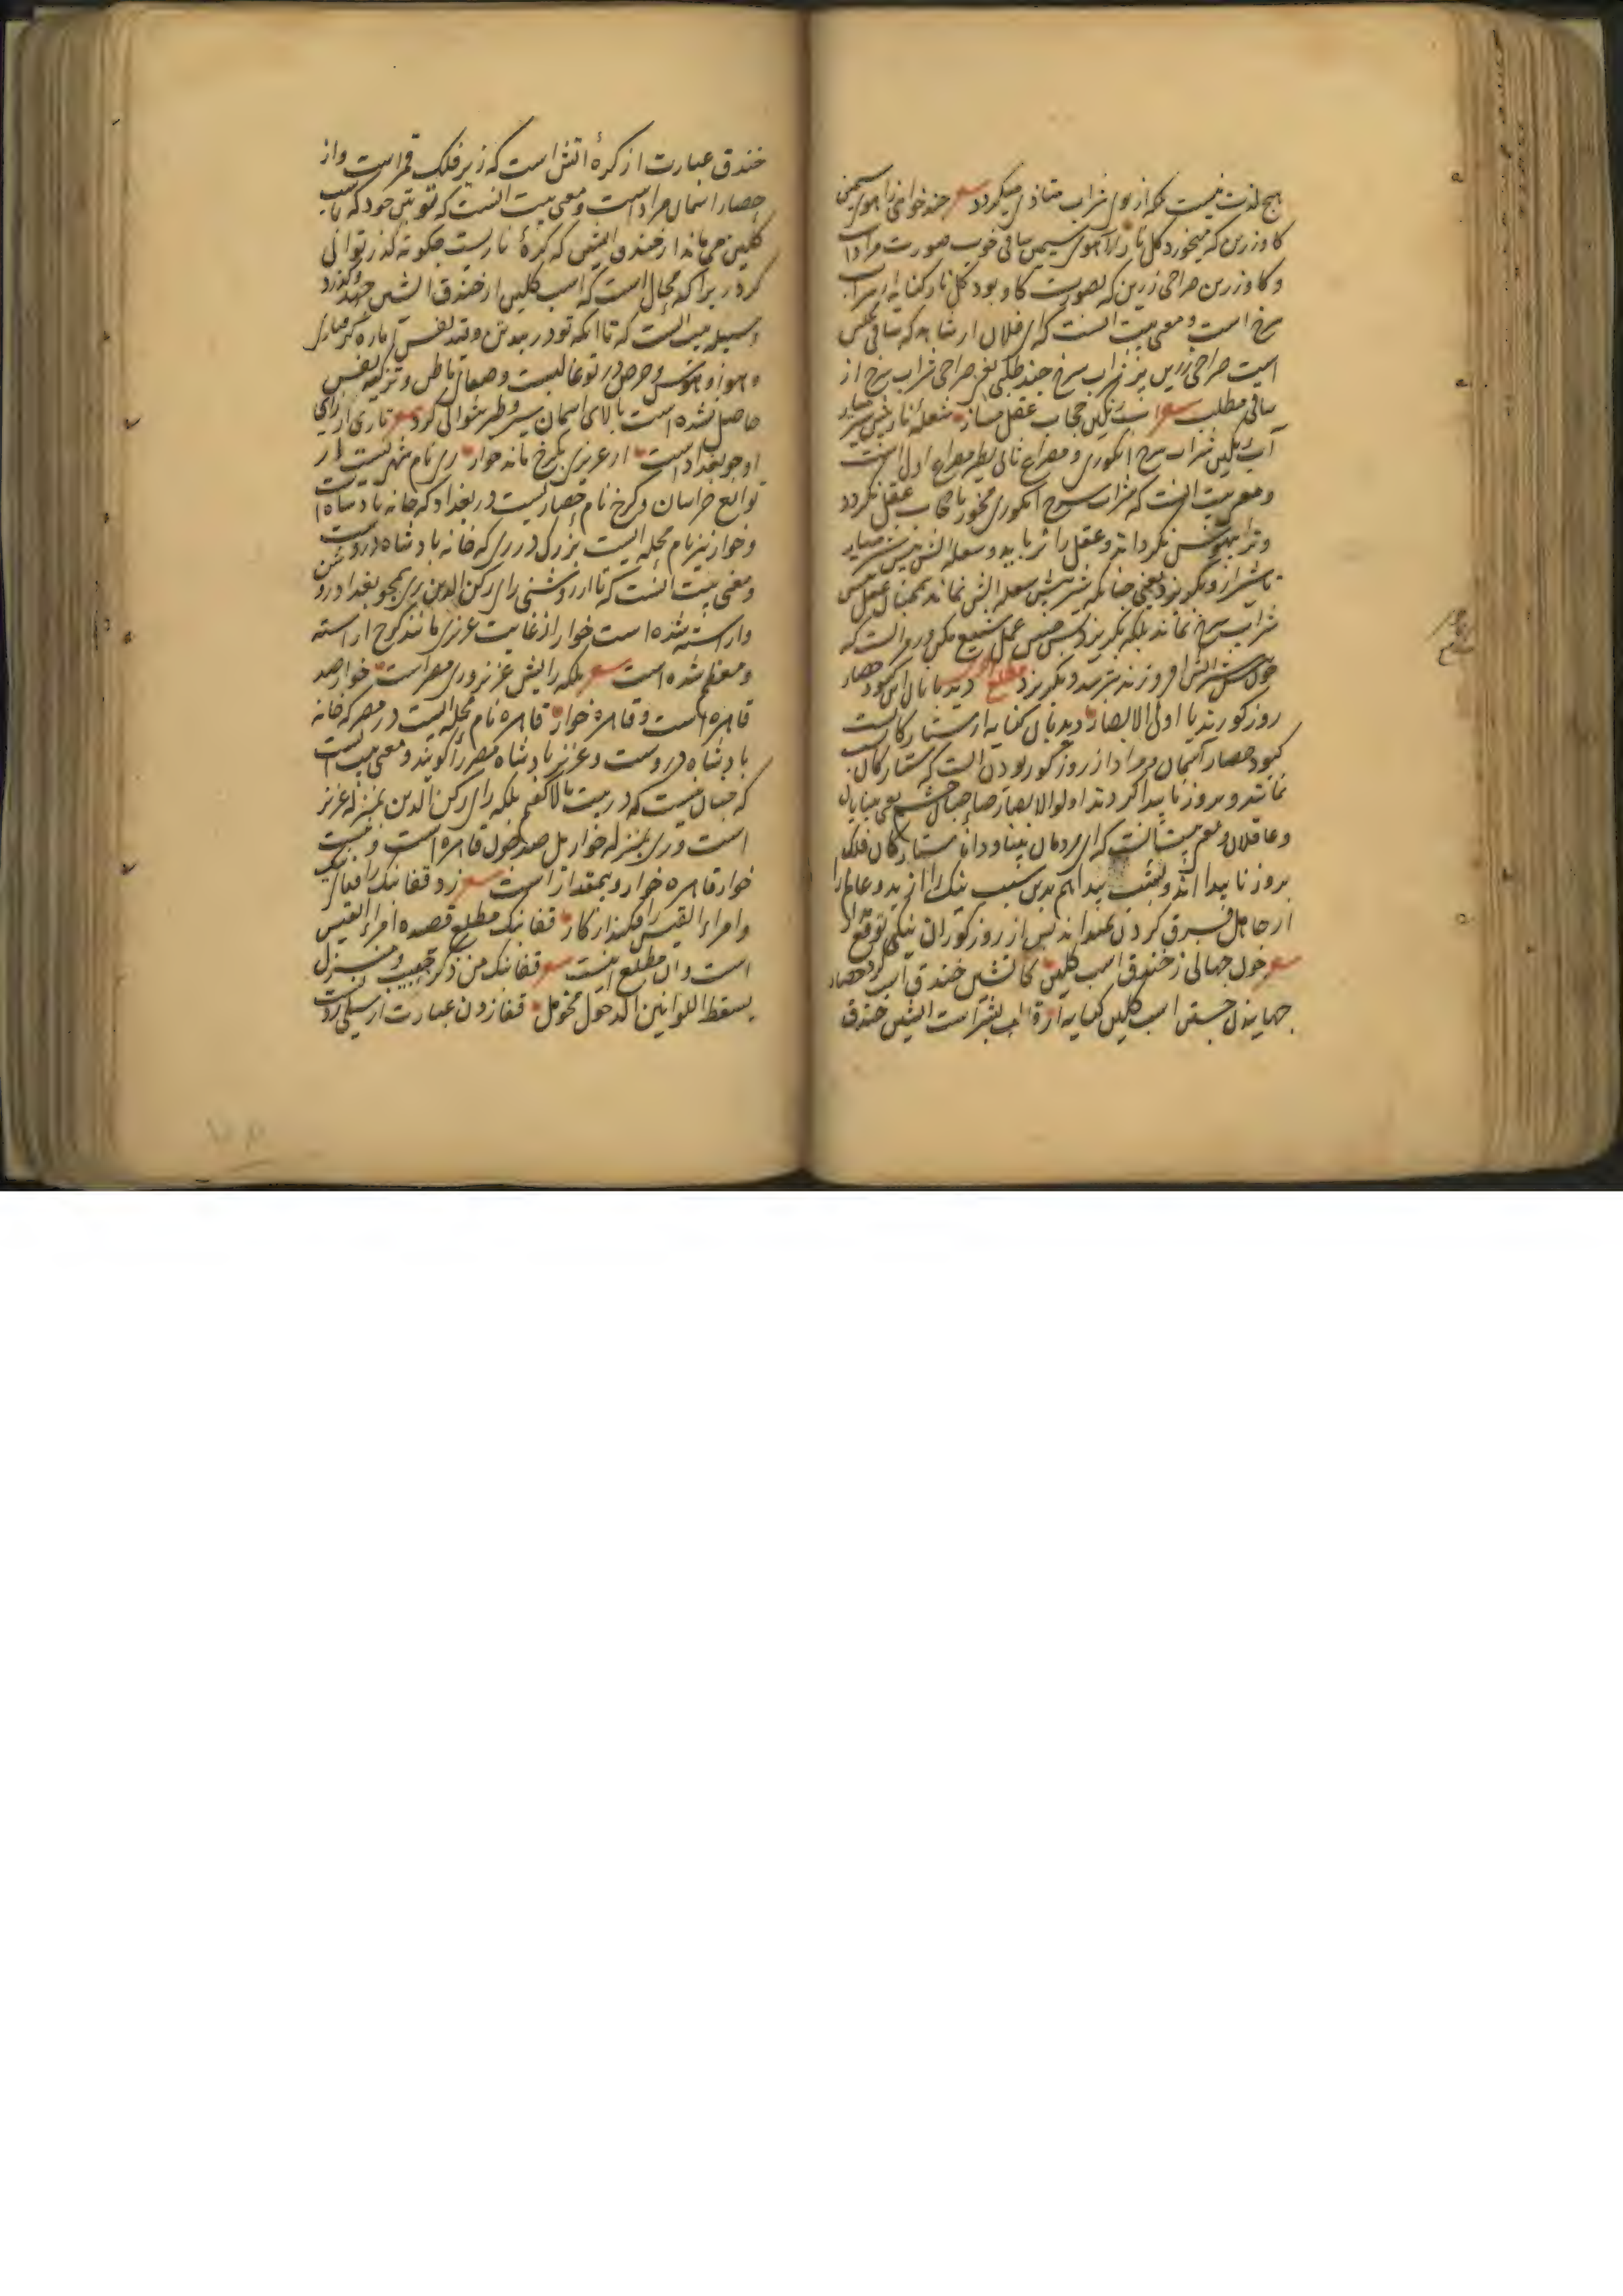 هیچ لذت نیست که از وی شراب متاذی میگردد شعر چند خواهی ز آهوی سیمین
گاو زرین که میخورد گلنار آهوی سیمین ساقی خوب صورت مراد است
و گاو زرین صراحی زرین که بصورت گاو بود گلنار کنایه از شراب
سرخ است و معنی بیت آنست که ای فلان از شاهد که ساقی مجلس
است صراحی زرین پر ز شراب سرخ چند طلبی یعنی صراحی شراب سرخ از
ساقی مطلب شعر آب رنگین حجاب عقل مساز شعله نار پیش شیر میار
آب رنگین شراب سرخ انگوری و مصراع ثانی نظیر مصراع اول است
و معنی بیت آنست که شراب سرخ انگوری مخور تا حجاب عقل نگردد
و ترا بیهوش نگرداند و عقل را نرباید و شعله آتش پیش شیر میار
تا شیر از و نگریزد یعنی چنانکه شیر پیش شعله آتش نماند همچنان عقل پیش
شراب سرخ نماند بلکه بگریزد پس چنین عمل شنیع مکن در روا است که
چون پیش شیر آتش افروزند بترسد و بگریزد مطلع دیدبانان این کبود حصار
روز کورند یا اولی الابصار دیدبان کنایه از ستارگانست
کبود حصار آسمان و مراد از روز کور بودن آنست که ستارگان بشب
نمایند و بروز ناپیدا گردند اولوالابصار صاحبان چشم یعنی بینایان
و عاقلان و معنی بیت آنست که ای مردمان بینا و دانا ستارگان فلک
بروز ناپیدا اند و بشب پیدا هم بدین سبب نیک را از بد و عالم را
از جاهل فرق کردن نمیتوانند پس از روز کوران نیکی توقع مدار
شعر چون جهانی ز خندق اسب گلین کاتشین خندق است گرد حصار
جهانیدن جستن اسب گلین کنایه از قالب بشر است آتشین خندق
خندق عبارت از کره آتش است که زیر فلک قمر است و از
حصار آسمان مراد است و معنی بیت آنست که تو بتن خود که باسب
گلین می ماند از خندق آتشین که کره ناریست چگونه گذر توانی
کرد زیرا که محال است که اسب گلین از خندق آتشین جهد و گذرد
وسیله بیت آنست که تا آنکه تو در بند تن و قید نفس اماره گرفتاری
و هنوز هوا و هوس و حرص در تو غالبست و صفای باطن و تزکیه نفس
حاصل نشده است بالای آسمان سیر و طیر نتوانی کرد شعر تا ری از رای
او چو بغداد است از عزیزی بکرخ ماند خوار ری نام شهریست از
توابع خراسان و کرخ نام حصاریست در بغداد که خانه پادشاه است
و خوار نیز نام محله ایست بزرگ در ری که خانه پادشاه دروست
و معنی بیت آنست که تا از روشنی رای رکن الدین ری همچو بغداد روشن
و آراسته شده است خوار از غایت عزیزی مانند کرخ آراسته
و معظم شده است شعر بلکه رایش عزیز و ری مصر است خوار صد
قاهره است و قاهره خوار قاهره نام محله ایست در مصر که خانه
پادشاه دروست و عزیز پادشاه مصر را گویند و معنی بیت آنست
که چنان نیست که در بیت بالا گفتم بلکه رای رکن الدین بمنزله عزیز
است و ری بمنزله خوار مثل صد چون قاهره است و نسبت
خوار قاهره خوار و بیمقدار است شعر زد قفانبک را قفای نیک
وامرء القیس را فکند از کار قفانبک مطلع قصیده امرء القیس
است و آن مطلع اینست شعر قفانبک من ذکری حبیب و منزل
بسقط اللوی بین الدخول فحومل قفا زدن عبارت از سیلی زدن